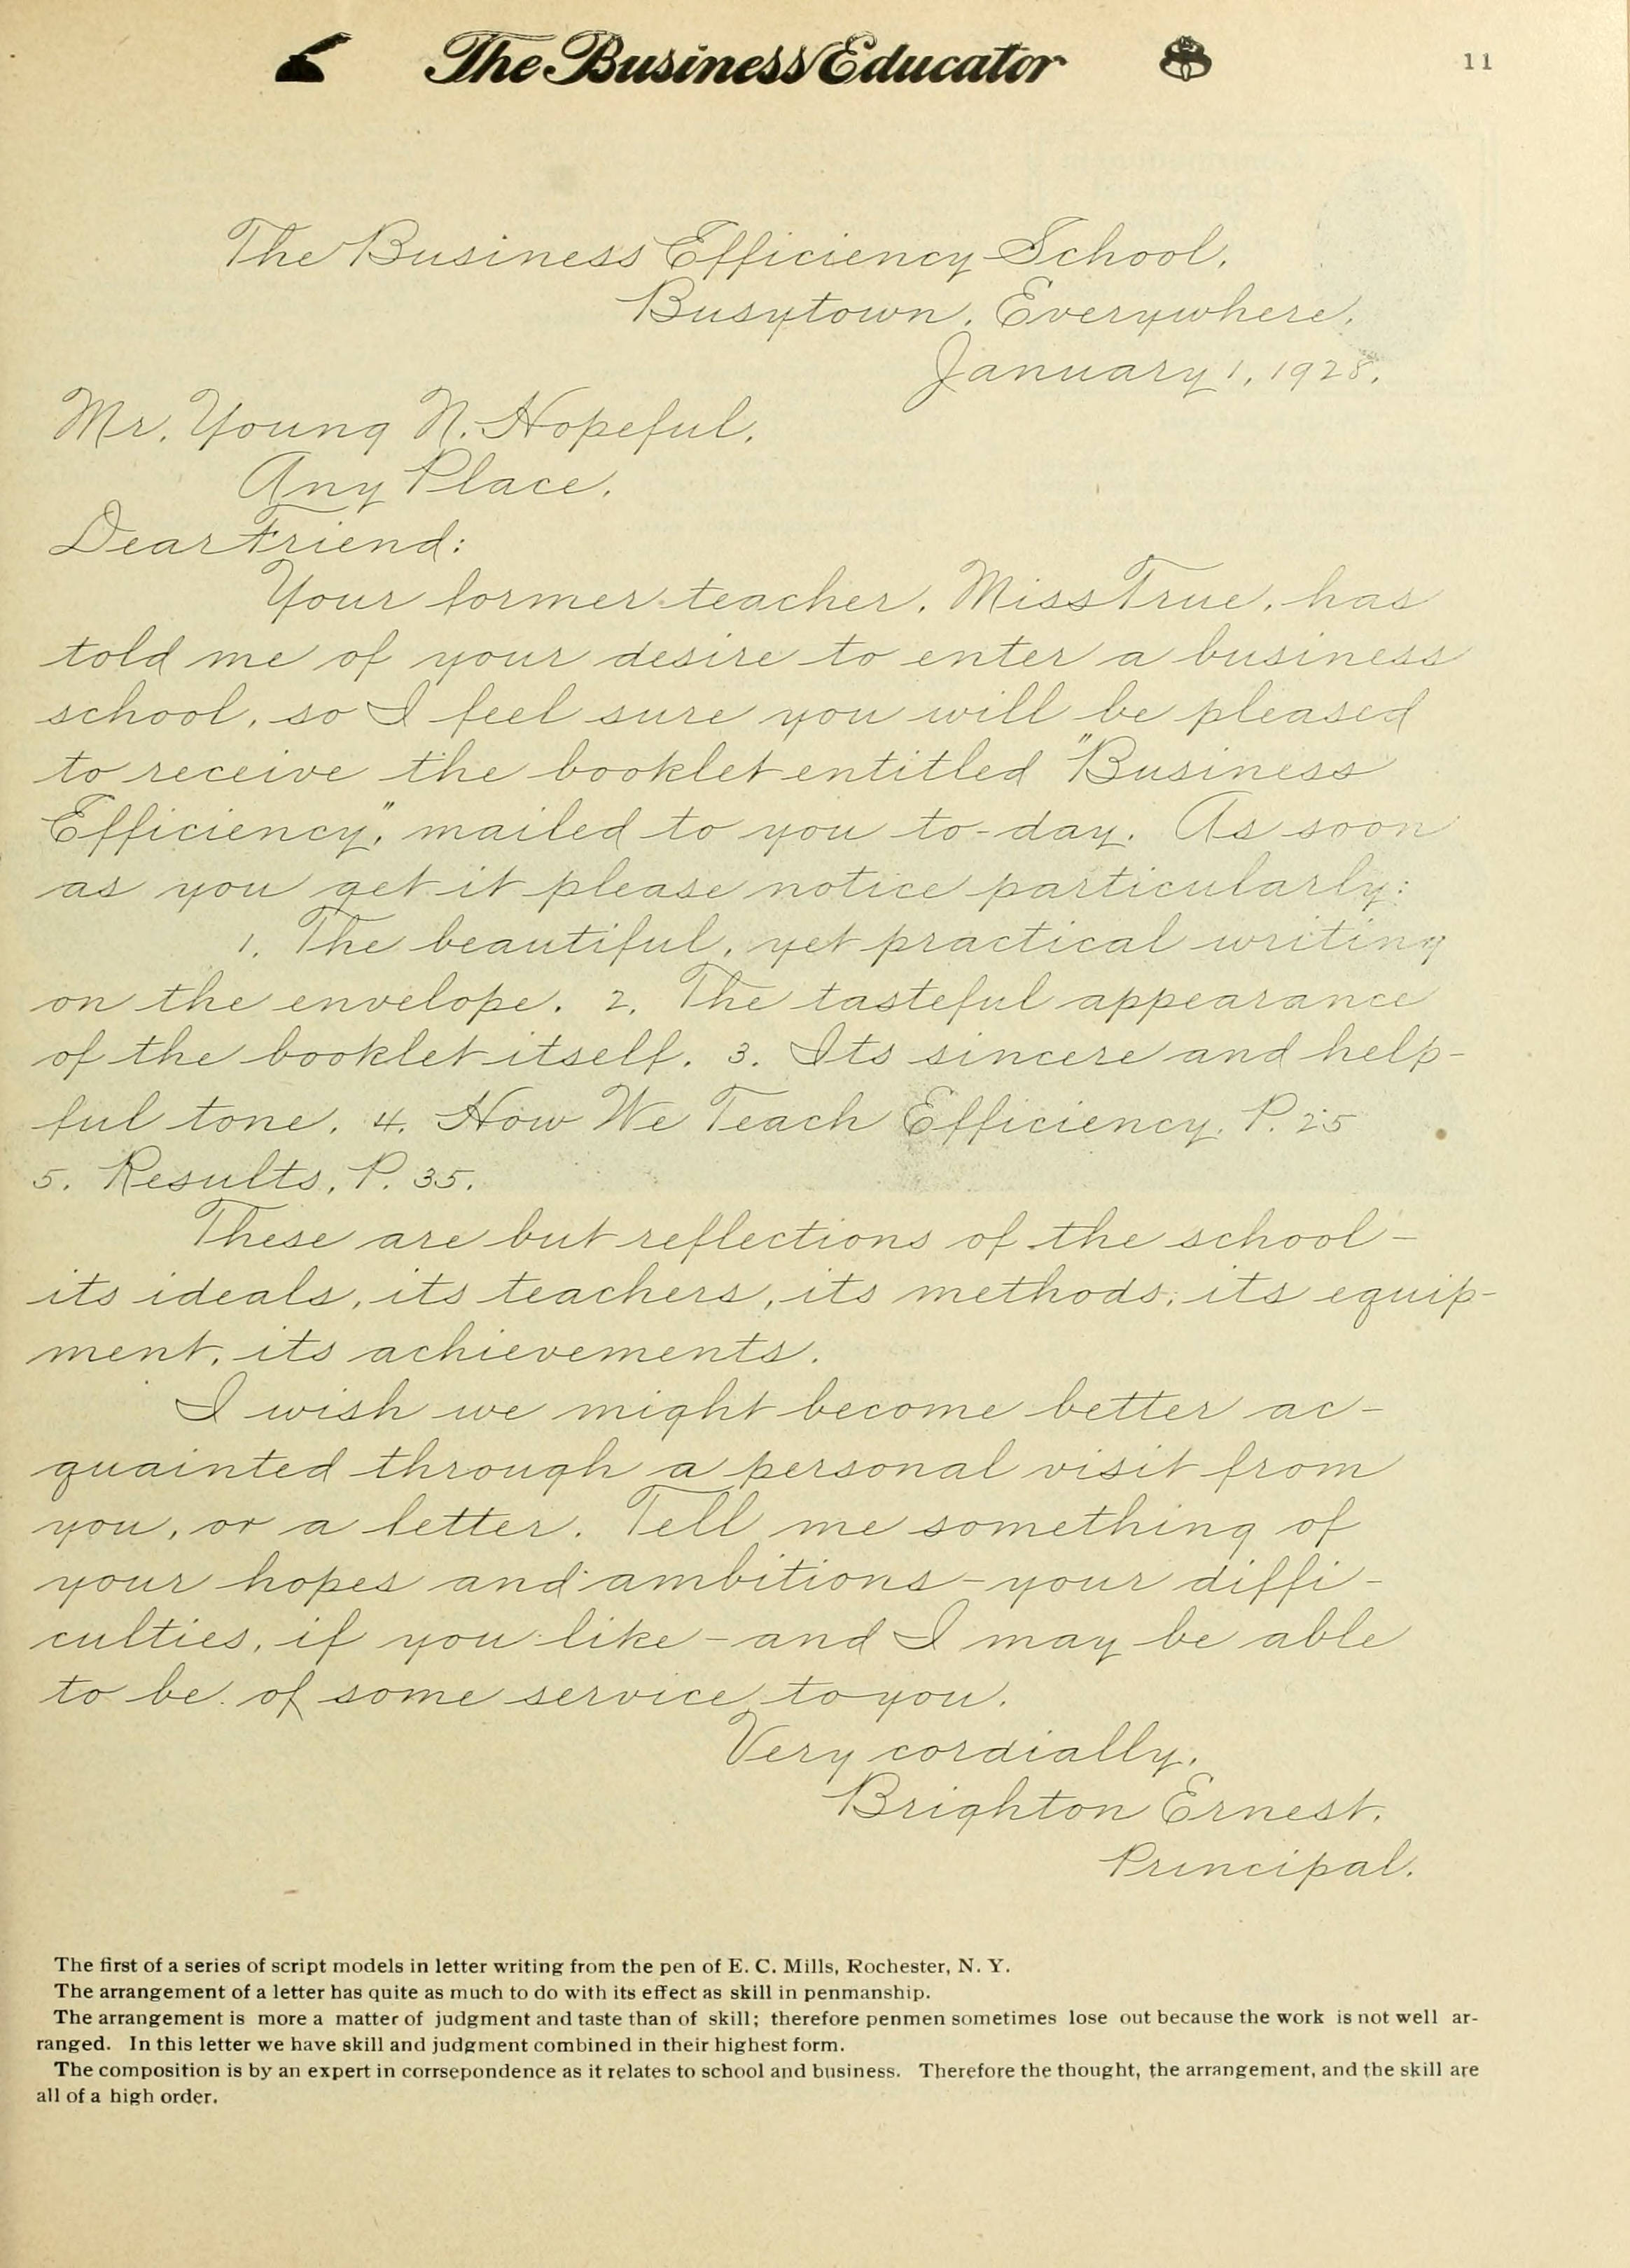 The Business Educator
11
The Business Efficiency School,
Busytown, Everywhere,
January 1, 1928.
Mr. Young N. Hopeful,
Any Place.
Dear Friend:
Your former teacher, Miss True, has
told me of your desire to enter a business
school, so I feel sure you will be pleased
to receive the booklet entitled "Business
Efficiency", mailed to you to-day. As soon
as you get it please notice particularly:
1. The beautiful, yet practical writing
on the envelope. 2. The tasteful appearance
of the booklet itself. 3. Its sincere and help-
ful tone. 4. How We Teach Efficiency, P. 25
5. Results, P. 35.
These are but reflections of the school-
its ideals, its teachers, its methods, its equip-
ment, its achievements.
I wish we might become better ac-
quainted through a personal visit from
you, or a letter. Tell me something of
your hopes and ambitions - your diffi-
culties, if you like - and I may be able
to be of some service to you.
Very cordially,
Brighton Ernest,
Principal.
The first of a series of script models in letter writing from the pen of E. C. Mills, Rochester, N. Y.
The arrangement of a letter has quite as much to do with its effect as skill in penmanship.
The arrangement is more a matter of judgment and taste than of skill; therefore penmen sometimes lose out because the work is not well ar-
ranged. In this letter we have skill and judgment combined in their highest form.
The composition is by an expert in corrsepondence as it relates to school and business. Therefore the thought, the arrangement, and the skill are
all of a high order.